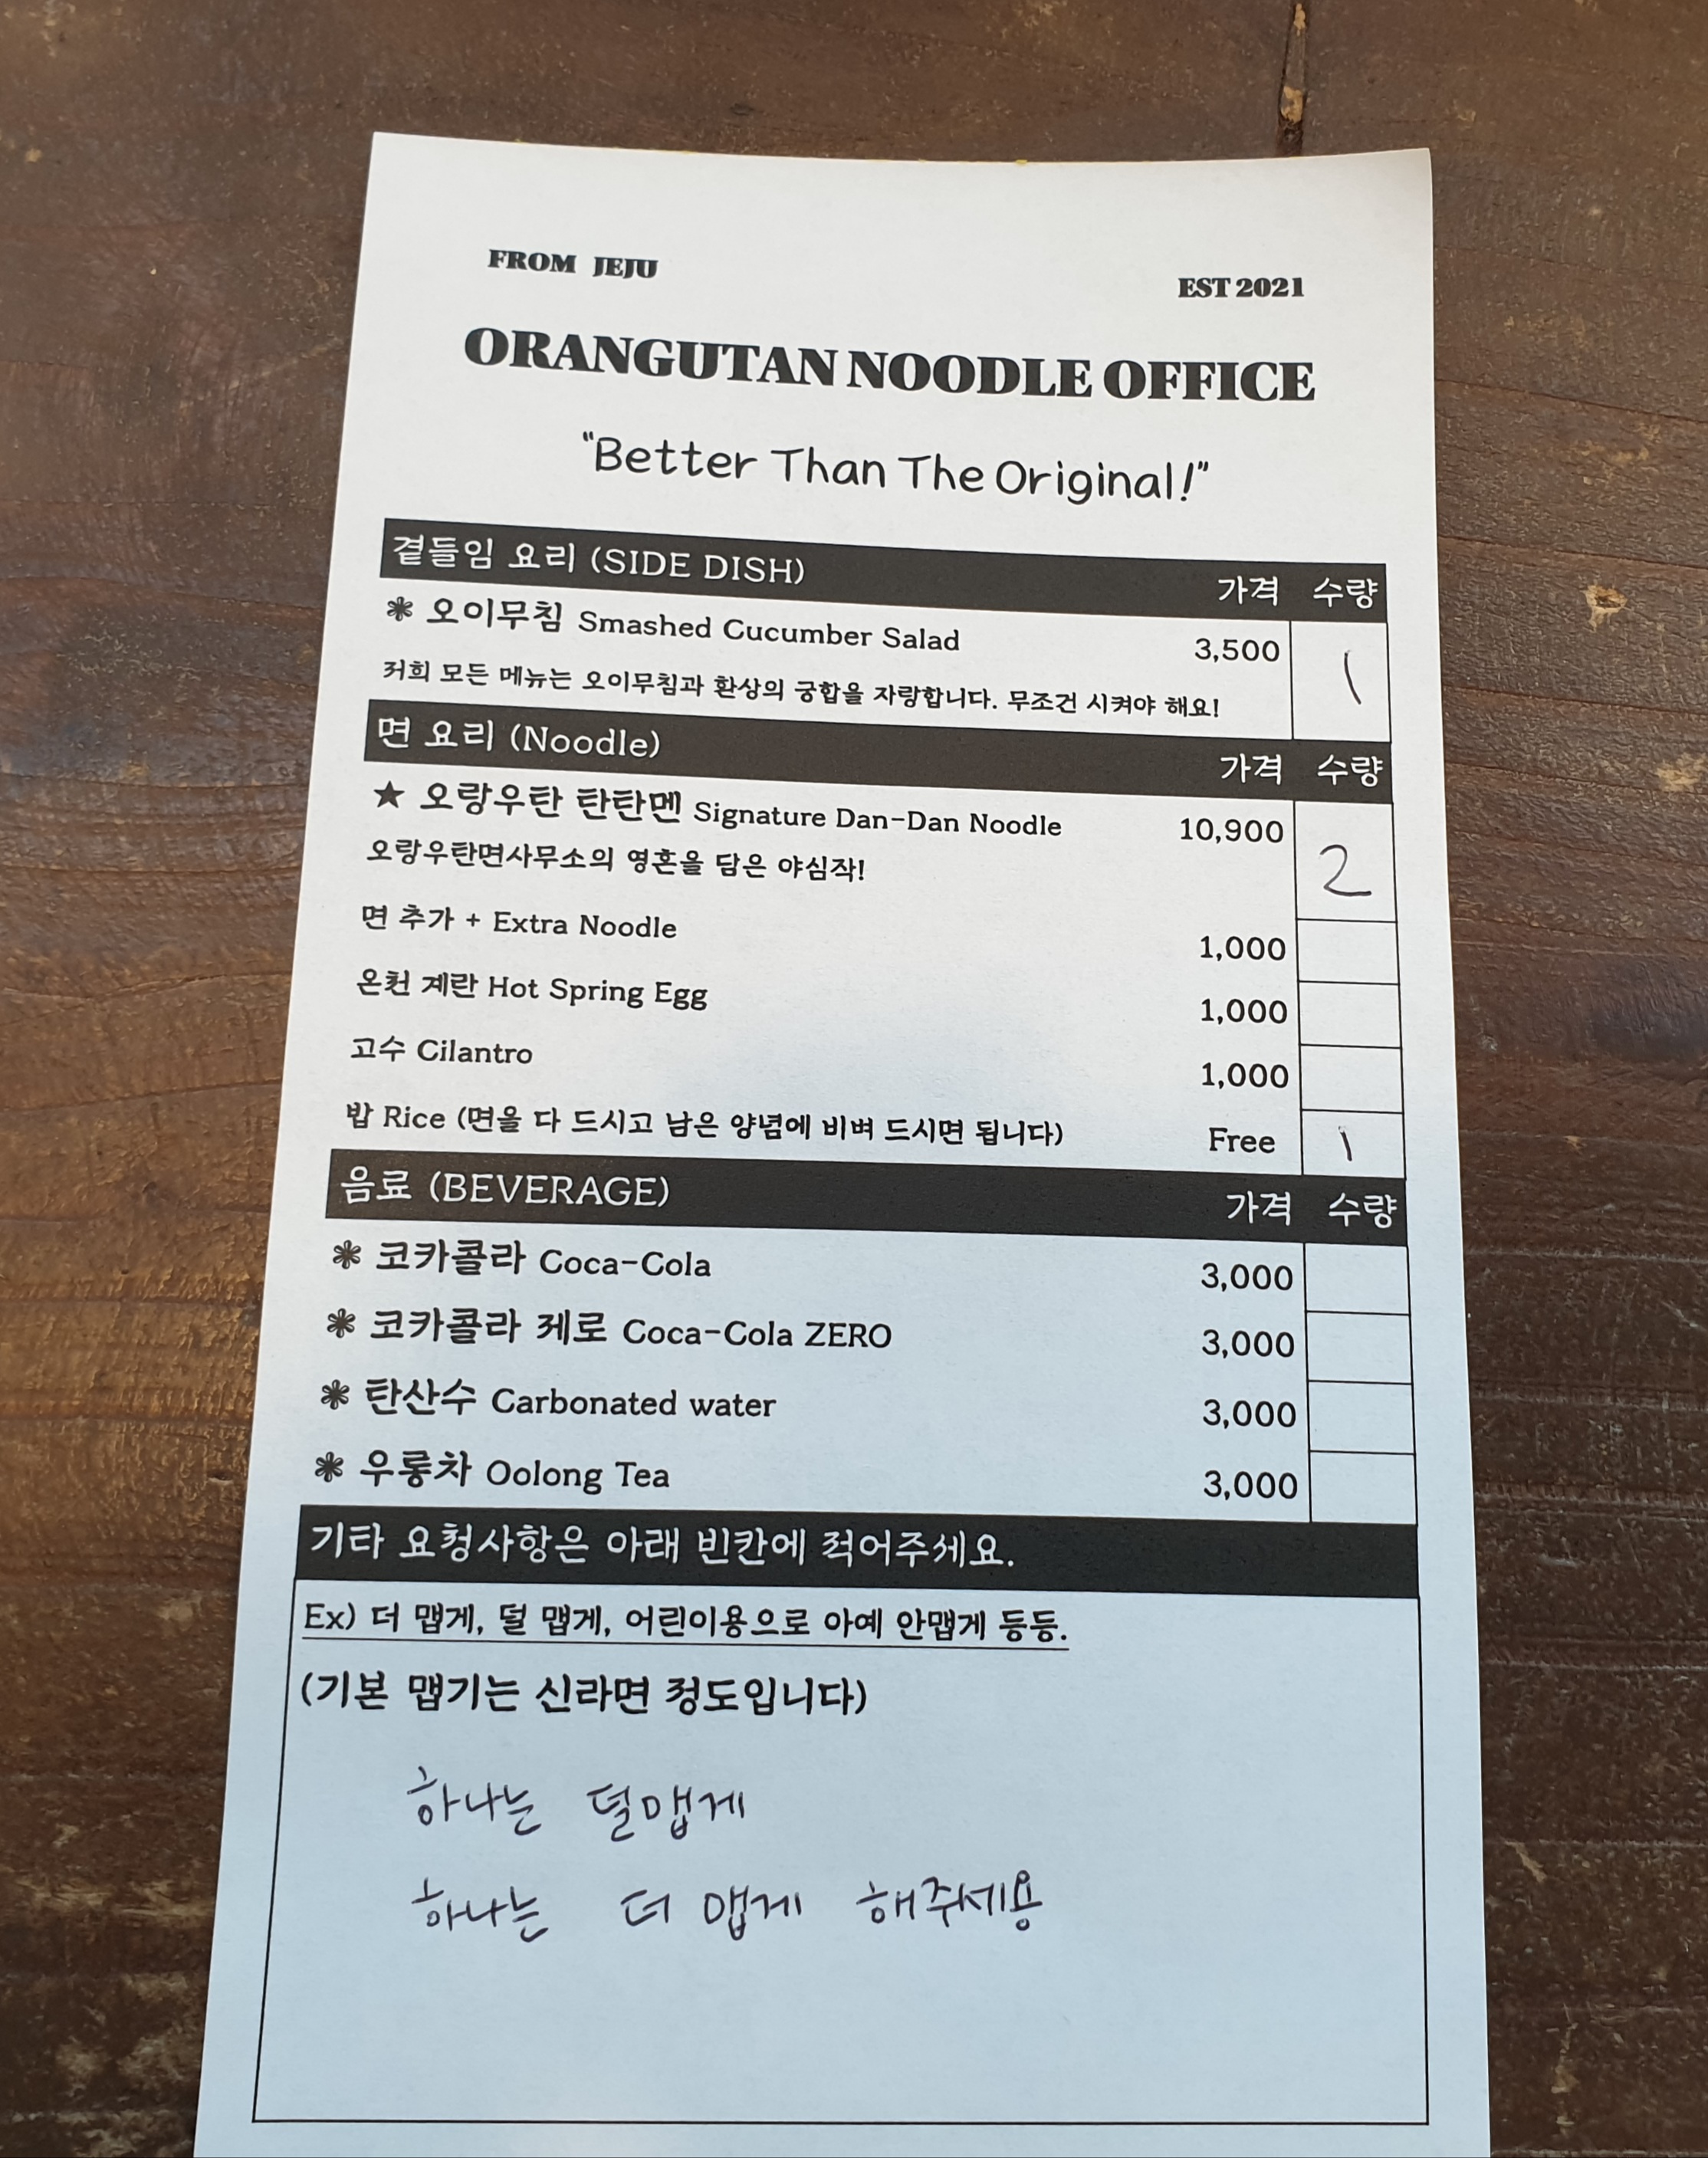 FROM JEJU
EST 2021
ORANGUTAN NOODLE OFFICE
"Better Than The Original!"
곁들임 요리 (SIDE DISH) 가격 수량
❃ 오이무침 Smashed Cucumber Salad 3,500 1
저희 모든 메뉴는 오이무침과 환상의 궁합을 자랑합니다. 무조건 시켜야 해요!
면 요리 (Noodle) 가격 수량
★ 오랑우탄 탄탄멘 Signature Dan-Dan Noodle 10,900 2
오랑우탄면사무소의 영혼을 담은 야심작!
면 추가 + Extra Noodle 1,000
온천 계란 Hot Spring Egg 1,000
고수 Cilantro 1,000
밥 Rice (면을 다 드시고 남은 양념에 비벼 드시면 됩니다) Free 1
음료 (BEVERAGE) 가격 수량
❃ 코카콜라 Coca-Cola 3,000
❃ 코카콜라 제로 Coca-Cola ZERO 3,000
❃ 탄산수 Carbonated water 3,000
❃ 우롱차 Oolong Tea 3,000
기타 요청사항은 아래 빈칸에 적어주세요.
Ex) 더 맵게, 덜 맵게, 어린이용으로 아예 안맵게 등등.
(기본 맵기는 신라면 정도입니다)
하나는 덜맵게
하나는 더 맵게 해주세용